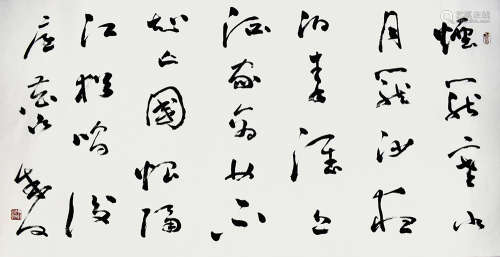 煙籠寒水
月籠沙夜
泊秦淮近
酒家商女不
知亡國恨隔
江猶唱後
庭花